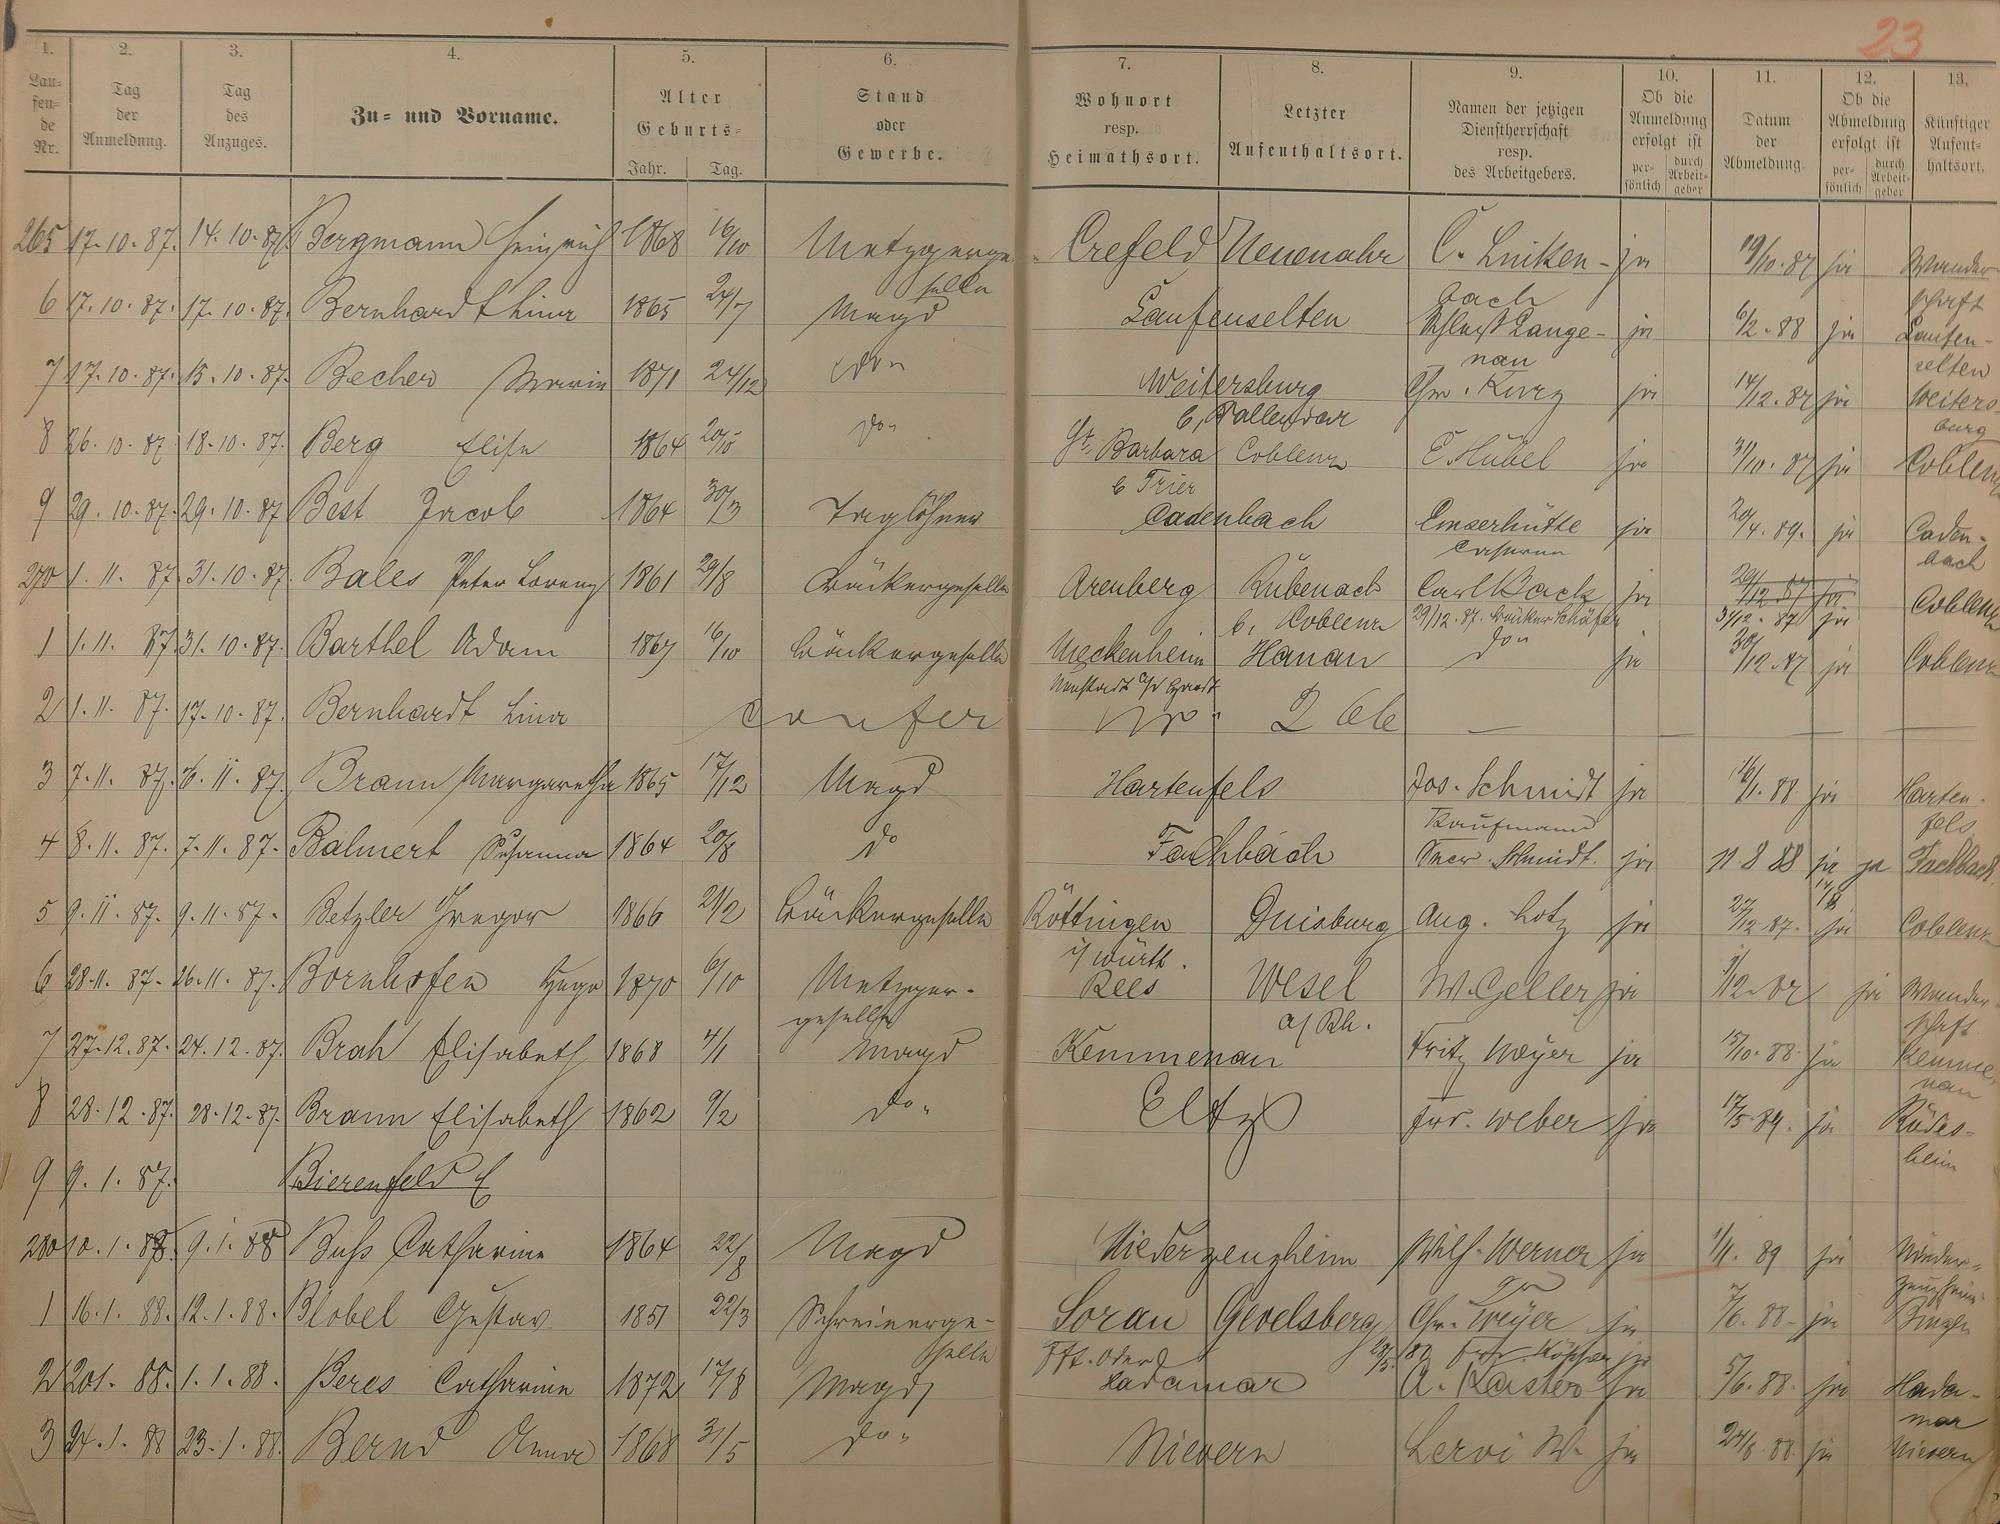 23
1. 2. 3. 4. 5. 6. 7. 8. 9. 10. 11. 12. 13.
Lau=fen=de Nr.
Tag der Anmeldung.
Tag des Anzuges.
Zu= und Vorname.
Alter Geburts= Jahr. Tag.
Stand oder Gewerbe.
Wohnort resp. Heimathsort.
Letzter Aufenthaltsort.
Namen der jetzigen Dienstherrschaft resp. des Arbeitgebers.
Ob die Anmeldung erfolgt ist persönlich durch Arbeitgeber
Datum der Abmeldung.
Ob die Abmeldung erfolgt ist persönlich durch Arbeitgeber
Künftiger Aufent-haltsort.
265 17.10.87. 14.10.87. Bergmann Heinrich 1868 16/10 Metzgergeselle Crefeld Neuenahr C. Linkenbach ja 19/10.87 ja Wanderschaft
6 17.10.87. 17.10.87. Bernhardt Lina 1865 24/7 Magd Laufenselten Schloß Langenau ja 6/2.88 ja Laufenselten
7 17.10.87. 15.10.87. Becher Maria 1871 24/12 do" Weitersburg b, Vallendar Chr. Kurz ja 14/12.87 ja Weitersburg
8 26.10.87 18.10.87. Berg Elise 1864 20/5 do" St. Barbara b Trier Coblenz E Hübel ja 31/10.87 ja Coblenz
9 29.10.87. 29.10.87 Best Jacob 1864 30/3 Taglöhner Cadenbach Emserhütte Caserne ja 20/4.89. ja Cadenbach
270 1.11.87. 31.10.87. Bales Peter Lorenz 1861 29/8 Bäckergeselle Arenberg Rübenach b, Coblenz Carl Back ja 29/12.87 ja
29/12.87. Bäcker Schäfer 31/12.87 ja Coblenz
1 1.11.87 31.10.87. Barthel Adam 1867 16/10 Bäckergeselle Meckenheim Neustadt a/d Hardt Hanau do" ja 30/12.87 ja Coblenz
2 1.11.87. 17.10.87. Bernhardt Lina confer No. 266 —
3 7.11.87. 6.11.87. Braun Margaretha 1865 17/12 Magd Hartenfels Jos. Schmidt Kaufmann ja 16/1.88. ja Hartenfels
4 8.11.87. 7.11.87. Balmert Susanna 1864 20/8 do Fachbach Schmidt. ja 11.8 88 ja ja Fachbach.
5 9.11.87. 9.11.87. Betzler Gregor 1866 21/2 Bäckergeselle Röttingen i/ Württ. Duisburg Aug. Lotz ja 27/12.87. ja Coblenz
6 28.11.87. 26.11.87. Bornhofen Hugo 1870 6/10 Metzger-geselle Rees Wesel a/ Rh. W. Geller ja 9/12.87 ja Wanderschaft
7 27.12.87. 24.12.87. Brah Elisabeth 1868 4/1 Magd Kemmenau Fritz Meyer ja 15/10.88. ja Kemmenau
8 28.12.87. 28.12.87. Braun Elisabeth 1862 9/2 do" Eltz Weber ja 17/5.89. ja Rüdesheim
9 9.1.87. Bierenfeld E
280 10.1.88. 9.1.88 Buhs Catharine 1864 22/8 Magd Niederzeuzheim Wilh. Werner ja 1/1.89 ja Niederzeuzheim
1 16.1.88. 12.1.88. Blobel Gustav 1851 22/3 Schreinergeselle Sorau Fft. Oder Gevelsberg Chr. Meyer ja 7/6.88. ja Bingen
2 20.1.88. 1.1.88. Beres Catharine 1872 17/8 Magd Hadamar A. Kaster ja 5/6.88. ja Hadamar
3 24.1.88 23.1.88. Bernd Anna 1868 31/5 do" Nievern Lervi W. ja 24/8.88. ja Nievern